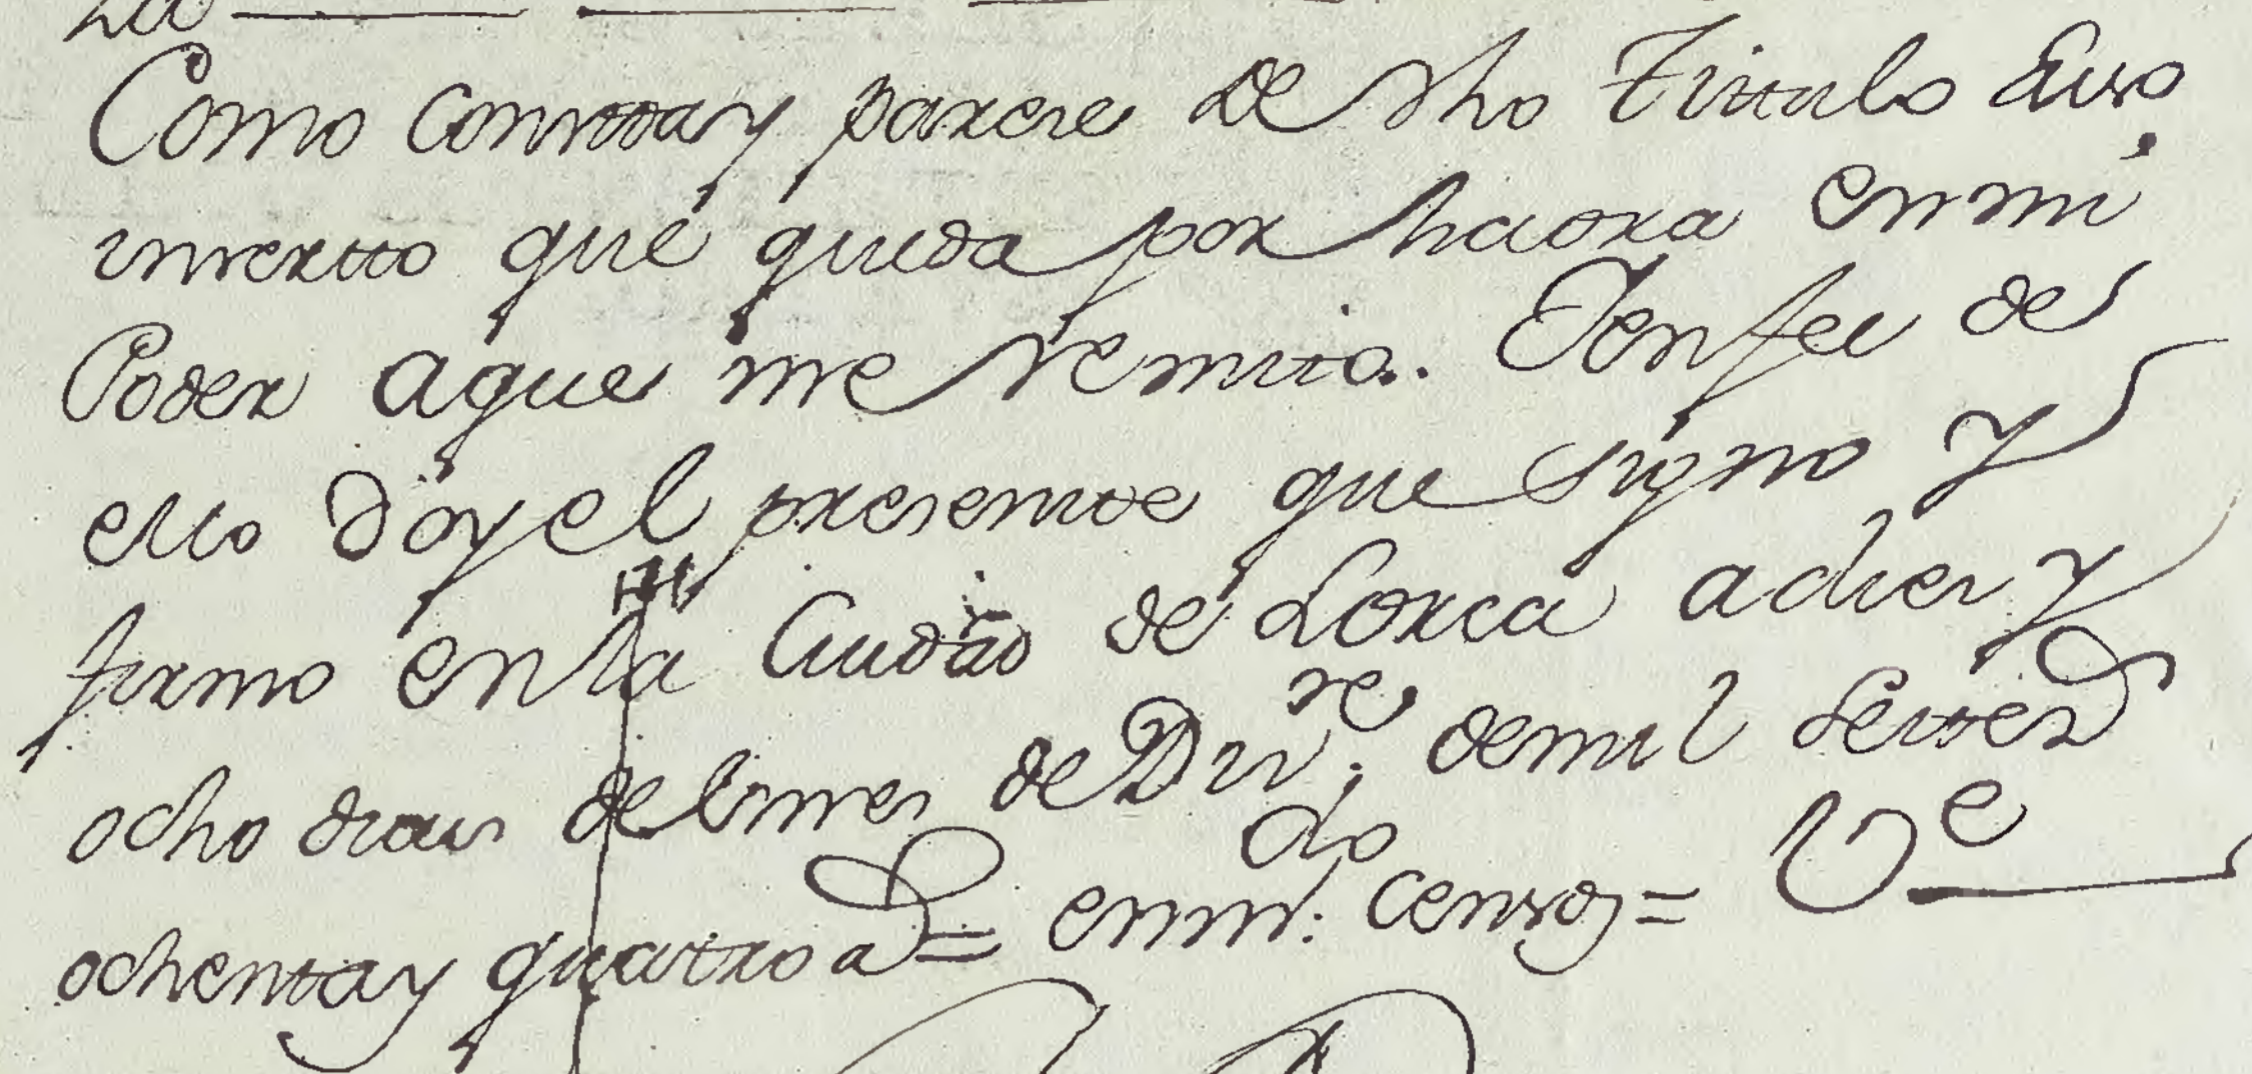 Como constta y parece de dho tittulo Suso
insertto que queda por haora en mi
Poder a que me remito. Y en fee de
ello doy el presentte que signo y
firmo en la Ciudad de Lorca a diez y
ocho dias del mes de Dizre. de mil settez
ochenta y quattro a = enmdo: censos = Ve